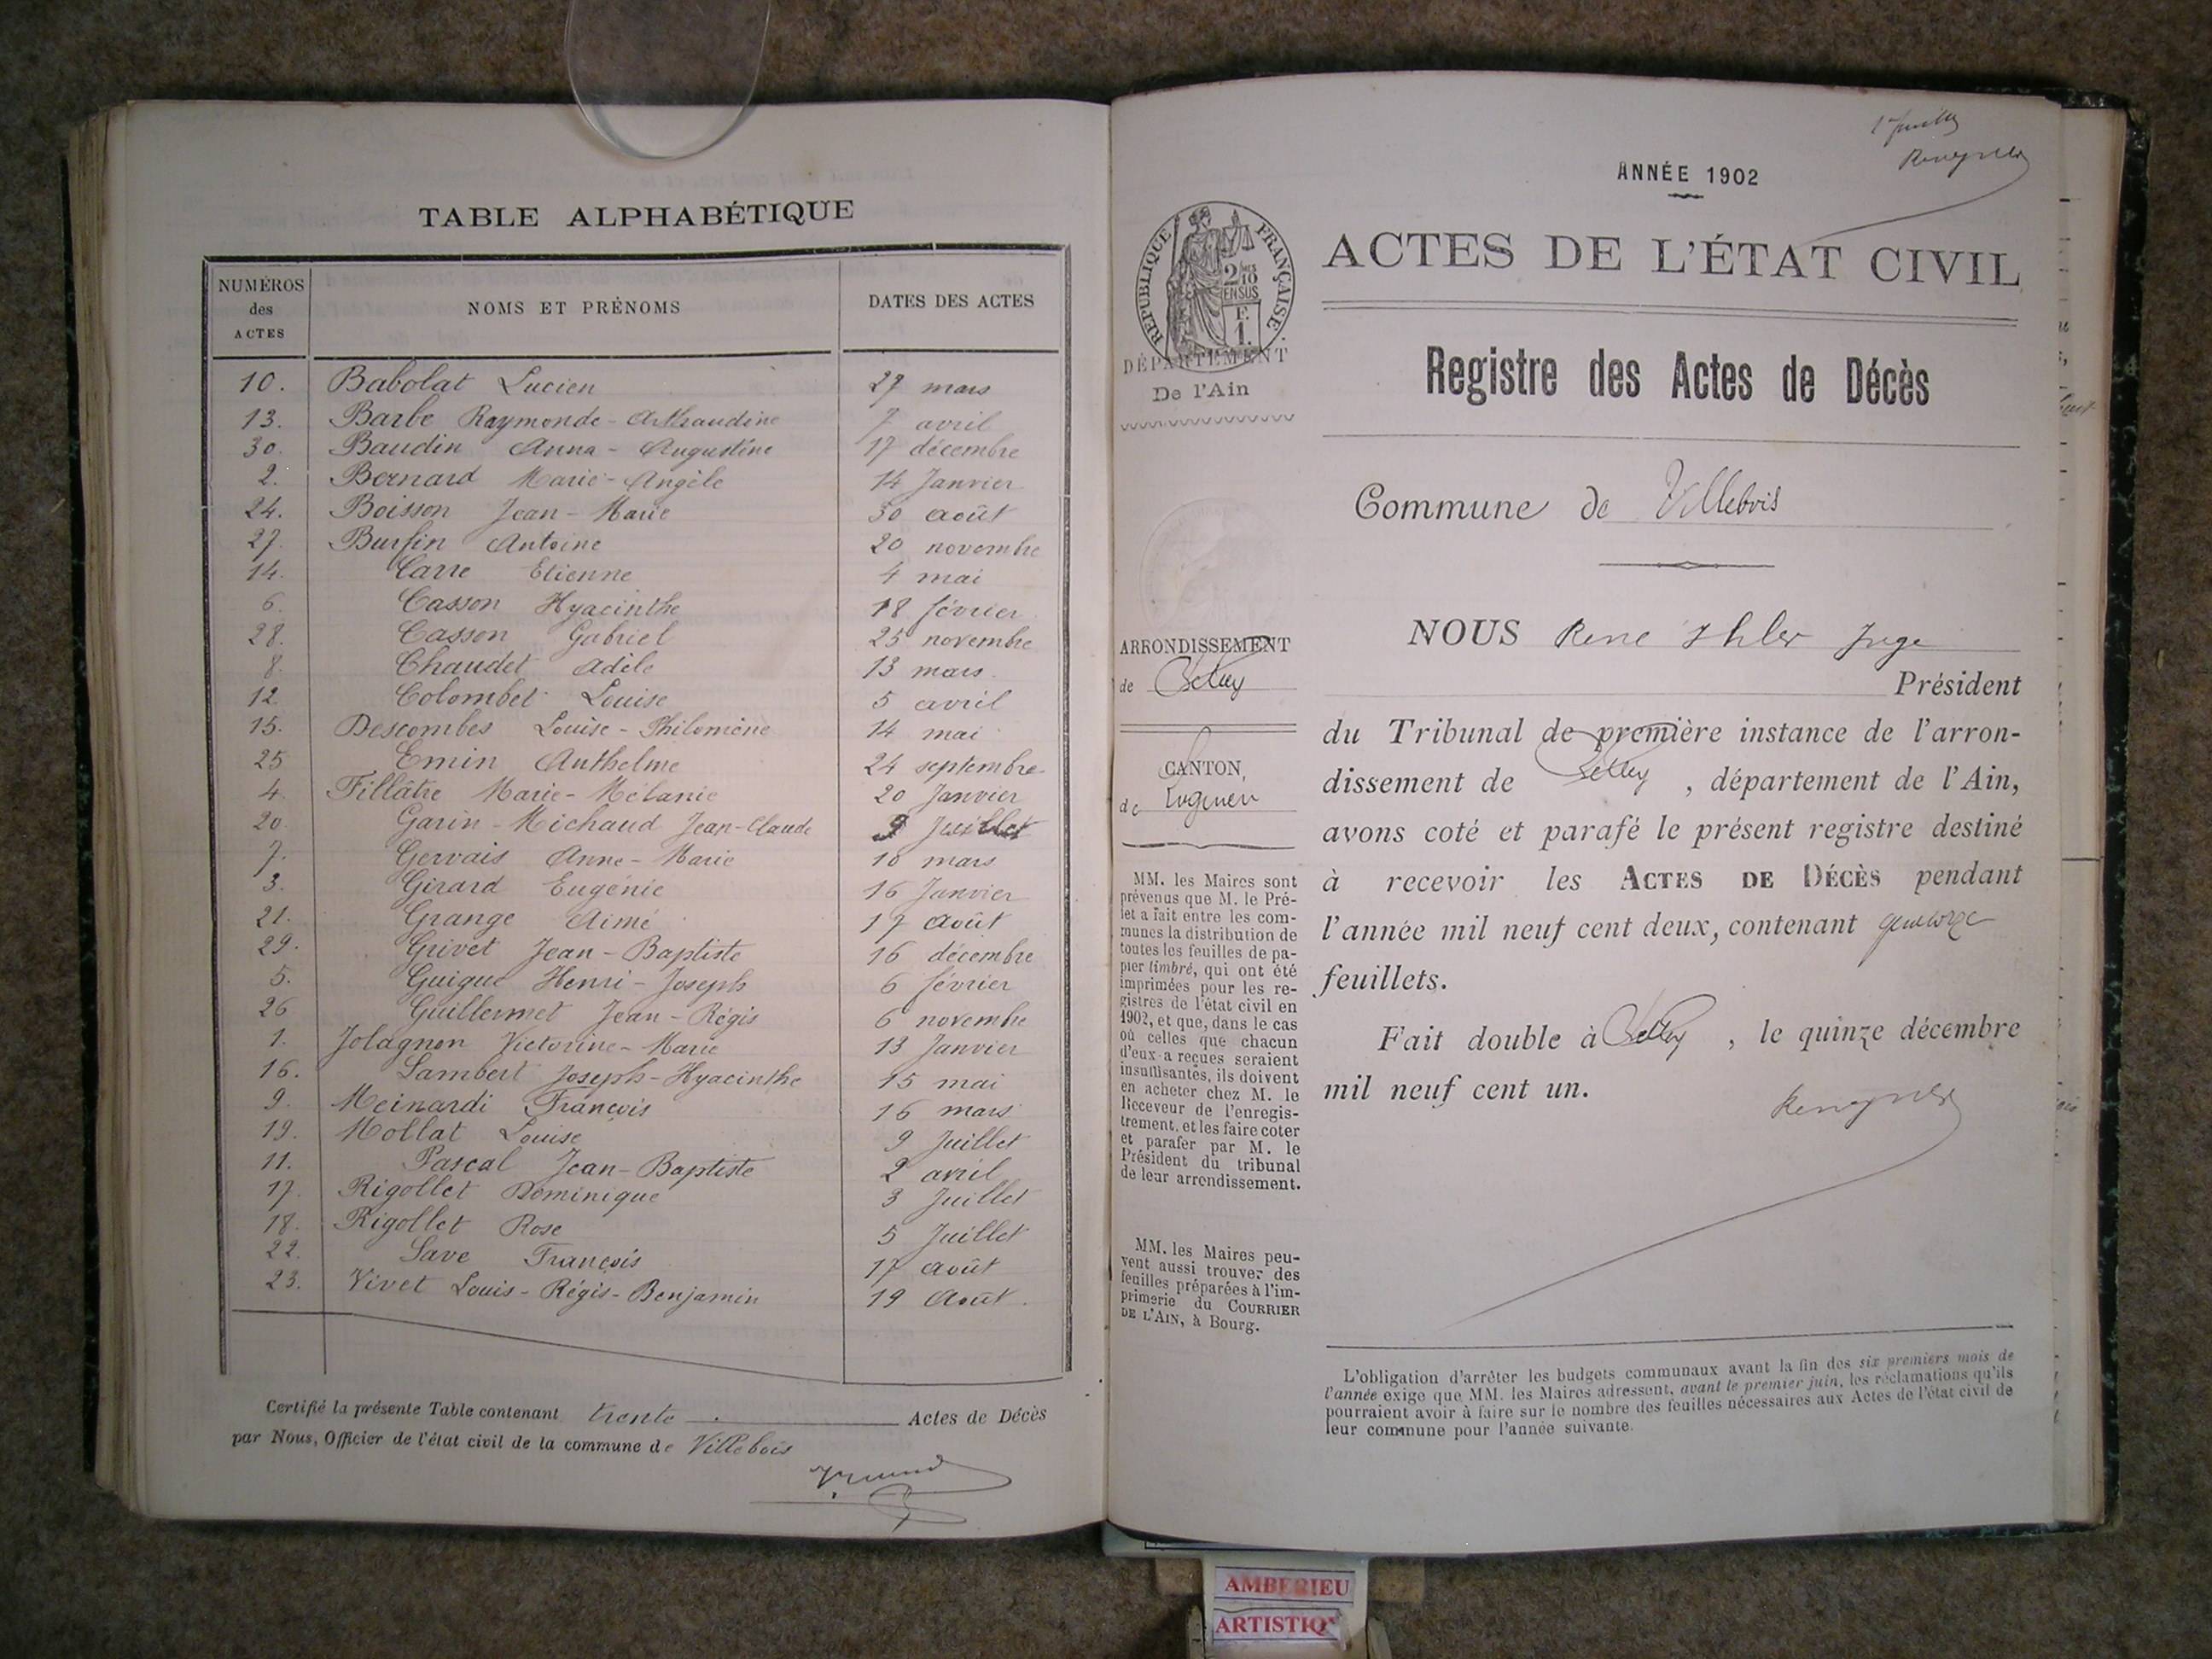 TABLE ALPHABÉTIQUE
NUMÉROS des ACTES NOMS ET PRÉNOMS DATES DES ACTES
10. Babolat Lucien 27 mars
13. Barbe Raymonde - Arthaudine 7 avril
30. Baudin Anna - Augustine 17 décembre
2. Bernard Marie - Angèle 14 Janvier
24. Boisson Jean - Marie 30 août
27. Burfin Antoine 20 novembre
14. Carre Etienne 4 mai
6. Casson Hyacinthe 18 février
28. Casson Gabriel 25 novembre
8. Chaudet Adèle 13 mars
12. Colombet Louise 5 avril
15. Descombes Louise - Philomène 14 mai
25 Emin Anthelme 24 septembre
4. Fillâtre Marie - Mélanie 20 Janvier
20. Garin - Michaud Jean - Claude 9 Juillet
7. Gervais Anne - Marie 10 mars
3. Girard Eugénie 16 Janvier
21. Grange Aimé 17 août
29. Grivet Jean - Baptiste 16 décembre
5. Guigue Henri - Joseph 6 février
26 Guillermet Jean - Régis 6 novembre
1. Jolagnon Victorine - Marie 13 Janvier
16. Lambert Joseph - Hyacinthe 15 mai
9. Meinardi François 16 mars
19. Mollat Louise 9 Juillet
11. Pascal Jean - Baptiste 2 avril
17. Rigollet Dominique 3 Juillet
18. Rigollet Rose 5 Juillet
22. Save François 17 août
23. Vivet Louis - Régis - Benjamin 19 Août
Certifié la présente Table contenant trente Actes de Décès
par Nous, Officier de l'état civil de la commune de Villebois
ANNÉE 1902
ACTES DE L'ÉTAT CIVIL
RÉPUBLIQUE FRANÇAISE
2/10 EN SUS
F. 1.
DÉPARTEMENT
De l'Ain
Registre des Actes de Décès
Commune de Villebois
ARRONDISSEMENT
de Belley
CANTON,
de Lagnieu
MM. les Maires sont
prévenus que M. le Pré-
fet a fait entre les com-
munes la distribution de
toutes les feuilles de pa-
pier timbré, qui ont été
imprimées pour les re-
gistres de l'état civil en
1902, et que, dans le cas
où celles que chacun
d'eux a reçues seraient
insuffisantes, ils doivent
en acheter chez M. le
Receveur de l'enregis-
trement, et les faire coter
et parafer par M. le
Président du tribunal
de leur arrondissement.
MM. les Maires peu-
vent aussi trouver des
feuilles préparées à l'im-
primerie du COURRIER
DE L'AIN, à Bourg.
NOUS René Ihler Juge
Président
du Tribunal de première instance de l'arron-
dissement de Belley, département de l'Ain,
avons coté et parafé le présent registre destiné
à recevoir les ACTES DE DÉCÈS pendant
l'année mil neuf cent deux, contenant quatorze
feuillets.
Fait double à Belley, le quinze décembre
mil neuf cent un.
L'obligation d'arrêter les budgets communaux avant la fin des six premiers mois de
l'année exige que MM. les Maires adressent, avant le premier juin, les réclamations qu'ils
pourraient avoir à faire sur le nombre des feuilles nécessaires aux Actes de l'état civil de
leur commune pour l'année suivante.
AMBERIEU
ARTISTIQ